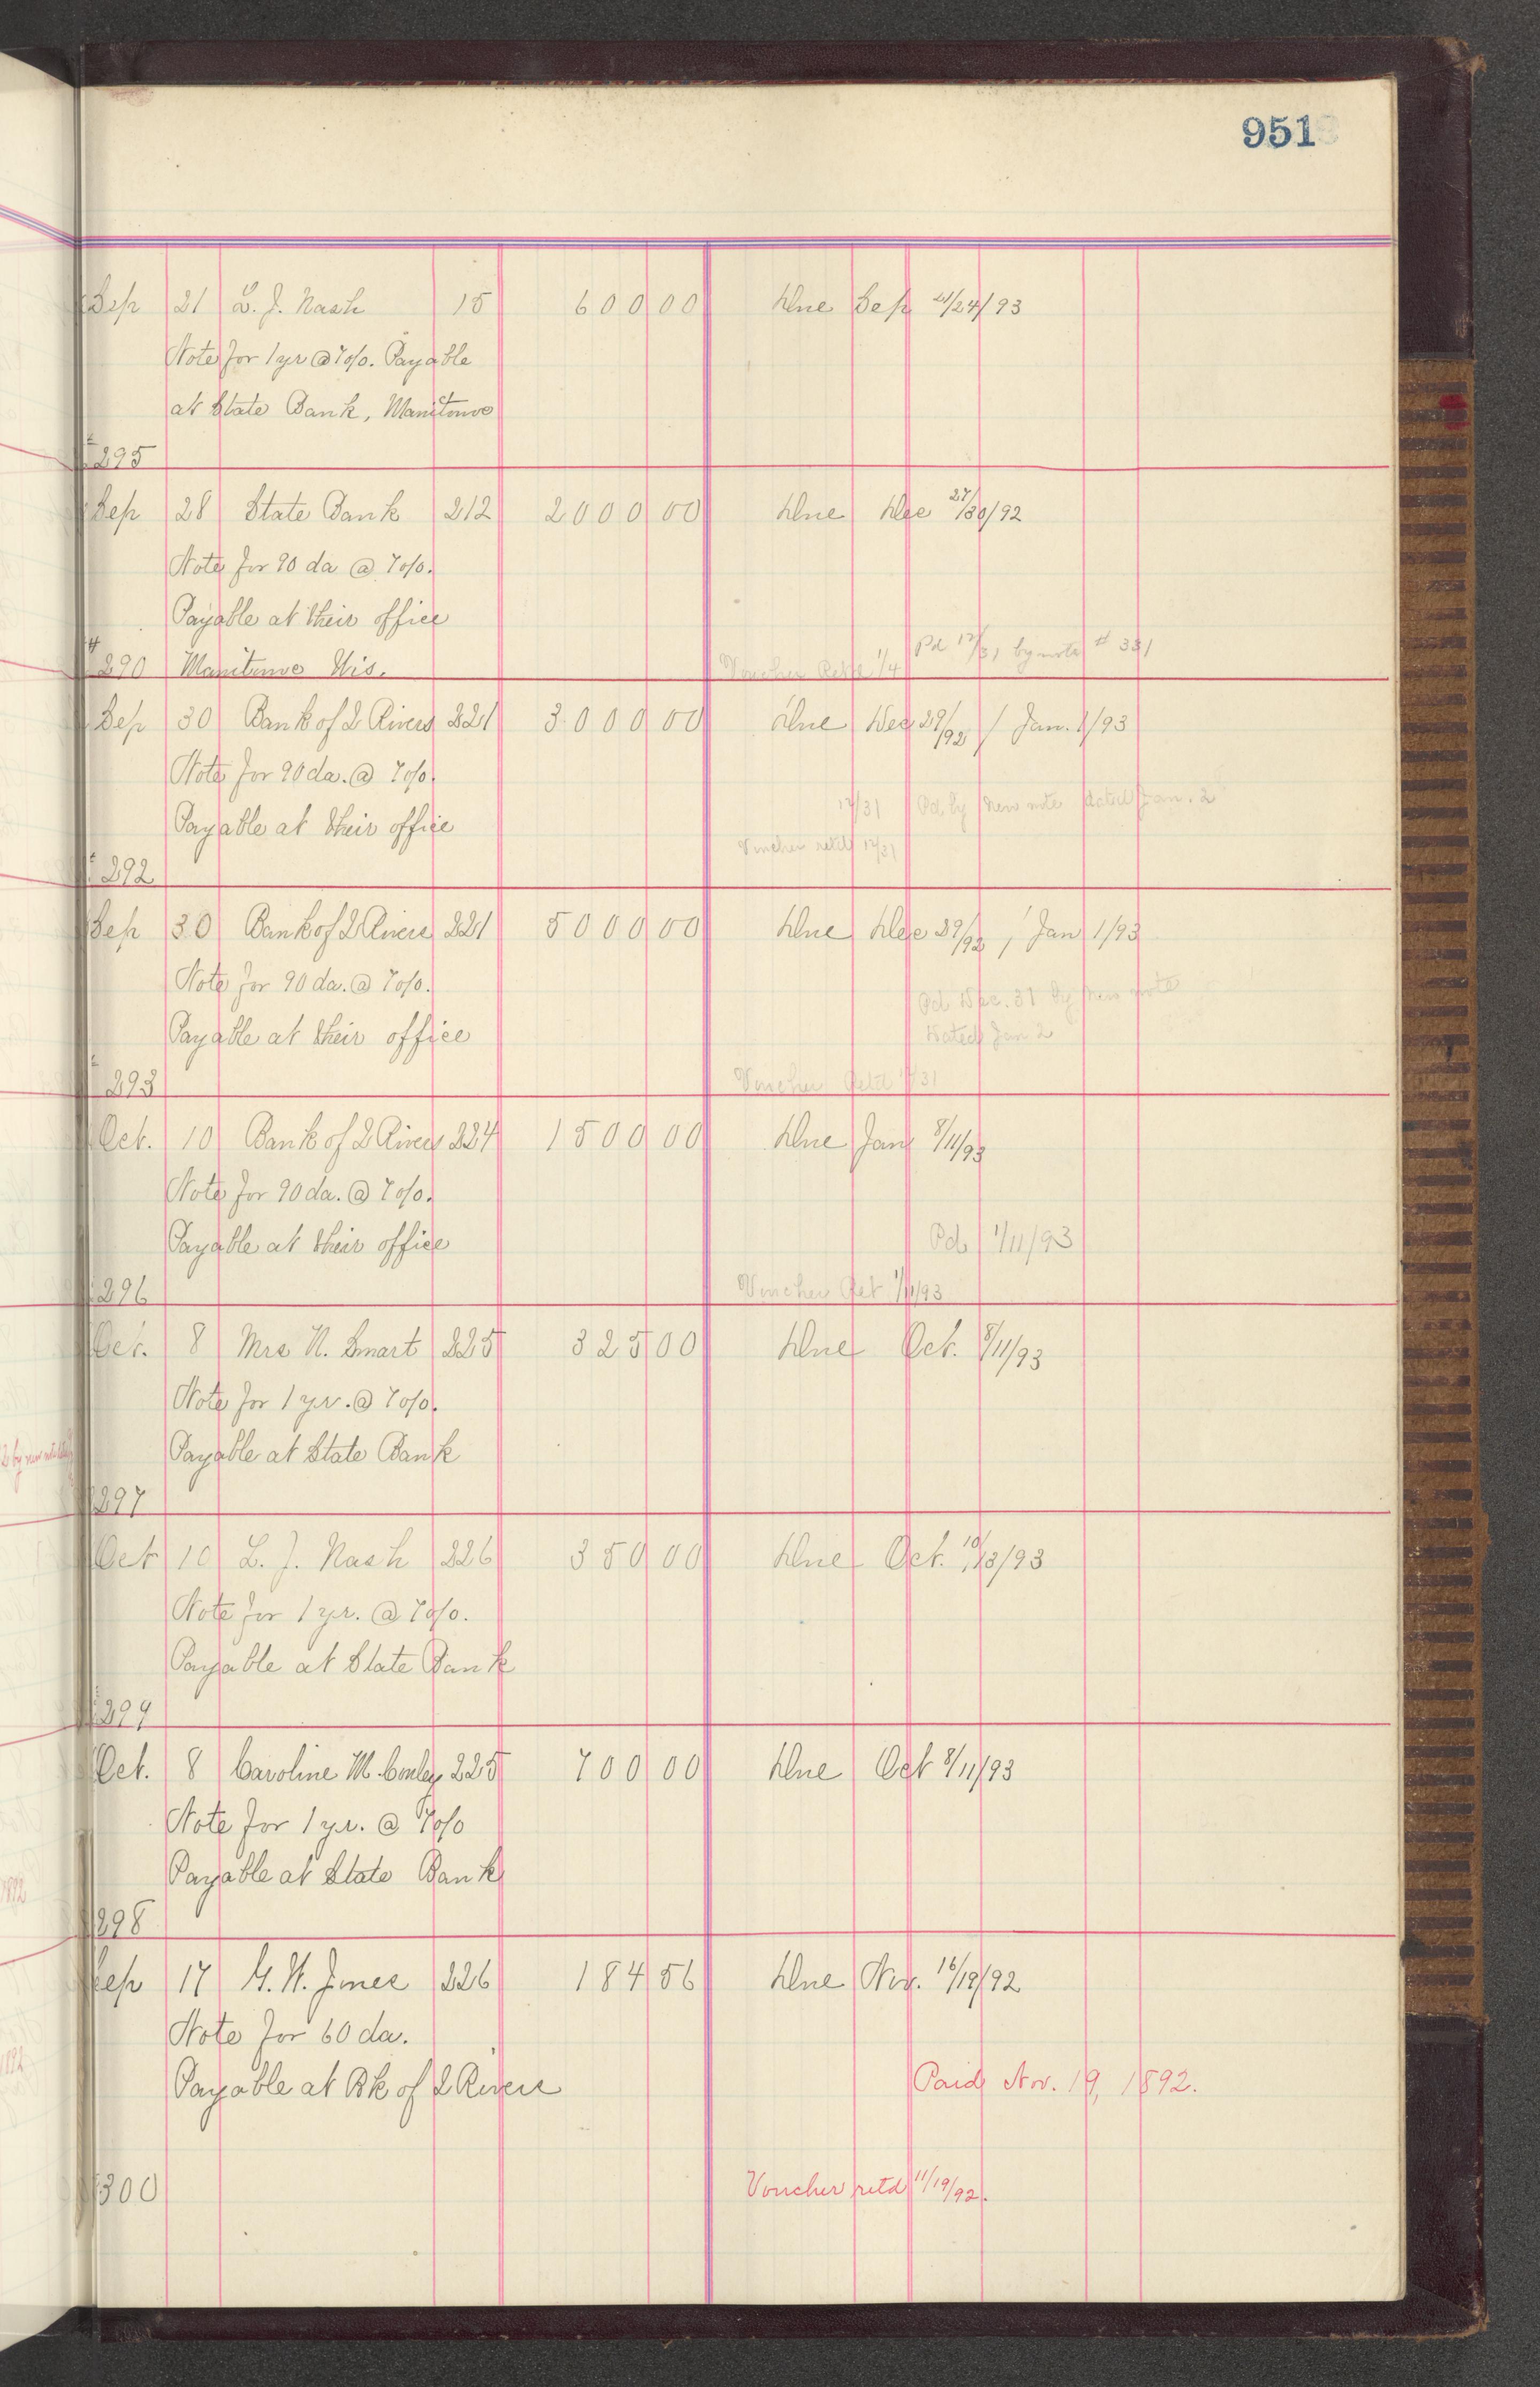 951
Sep 21 L. J. Nash 15 600 00 Due Sep 21/24/93
Note for 1 yr @ 7o/o. Payable
at State Bank, Manitowoc
295
Sep 28 State Bank 212 2000 00 Due Dec 27/30/92
Note for 90 da @ 7o/o.
Payable at their office
Pd 12/31 by note # 331
290 Manitowoc Wis. Voucher Retd 1/4
Sep 30 Bank of 2 Rivers 221 3000 00 Due Dec 29/92 / Jan. 1/93
Note for 90 da. @ 7o/o.
12/31 Pd by new note dated Jan. 2
Payable at their office
Voucher retd 12/31
292
Sep 30 Bank of 2 Rivers 221 5000 00 Due Dec 29/92 / Jan 1/93
Note for 90 da. @ 7o/o.
Pd Dec. 31 by new note
Payable at their office dated Jan 2
293 Voucher Retd 12/31
Oct. 10 Bank of 2 Rivers 224 1500 00 Due Jan 8/11/93
Note for 90 da. @ 7o/o.
Payable at their office Pd 1/11/93
296 Voucher Ret 1/11/93
Oct. 8 Mrs N. Smart 225 325 00 Due Oct. 8/11/93
Note for 1 yr. @ 7o/o.
Payable at State Bank
297
Oct 10 L. J. Nash 226 350 00 Due Oct. 10/13/93
Note for 1 yr. @ 7o/o.
Payable at State Bank
299
Oct. 8 Caroline M. Conley 225 700 00 Due Oct 8/11/93
Note for 1 yr. @ 7o/o
Payable at State Bank
298
Sep 17 G. W. Jones 226 184 56 Due Nov. 16/19/92
Note for 60 da.
Payable at Bk of 2 Rivers Paid Nov. 19, 1892.
300 Voucher retd 11/19/92.